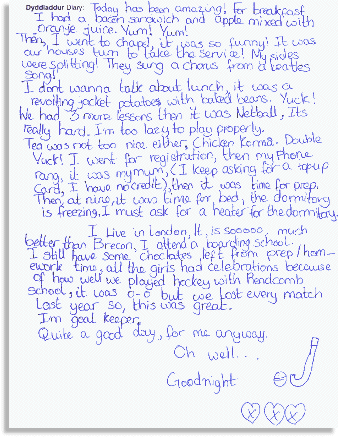 Dyddiaddur Diary: Today has been amazing! for breakfast
I had a bacon sandwich and apple mixed with
orange juice. Yum! Yum!
Then, I went to chapel, it was so funny! It was
our houses turn to take the service! My sides
were splitting! They sung a chorus from a beatles
song!
I dont wanna talk about lunch, it was a
revolting jacket potatoes with baked beans. Yuck!
We had 3 more lessons then it was Netball, Its
really hard. I'm too lazy to play properly.
Tea was not too nice either, Chicken Korma. Double
Yuck! I went for registration, then my Phone
rang, it was my mum, (I keep asking for a top up
card, I have no credit), then it was time for prep.
Then, at nine, it was time for bed, the dormitory
is freezing, I must ask for a heater for the dormitory.
I Live in London, It is sooooo, much
better than Brecon. I attend a boarding school.
I still have some choclates left from prep/hom-
ework time, all the girls had celebrations because
of how well we played hockey with Rendcomb
school, it was 0-0 but we lost every match
last year so, this was great.
I'm goal keeper.
Quite a good day, for me anyway.
Oh well...
Goodnight